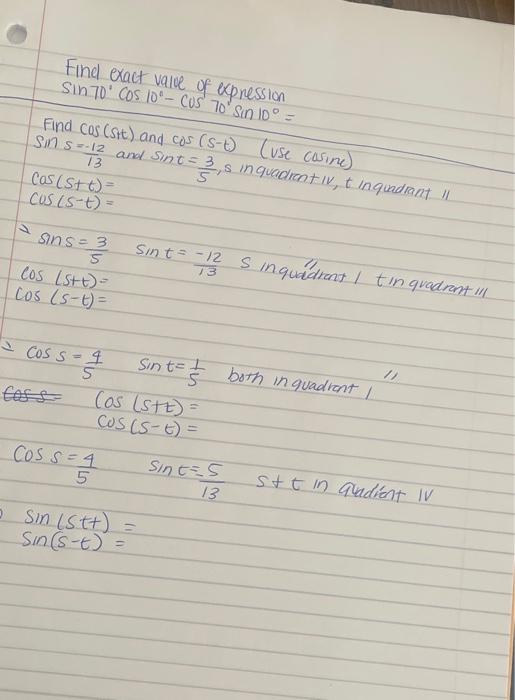 Find exact value of expression
sin 70° cos 10° - cos 70° sin 10° =
Find cos (s+t) and cos (s-t) (use cosine)
sin s = -12/13 and sin t = 3/5, s in quadrant IV, t in quadrant II
cos (s+t) =
cos (s-t) =
sin s = 3/5 sin t = -12/13 s in quadrant I t in quadrant III
cos (s+t) =
cos (s-t) =
cos s = 4/5 sin t = 1/5 both in quadrant I
cos s =
cos (s+t) =
cos (s-t) =
cos s = 4/5 sin t = -5/13 s + t in quadient IV
sin (s+t) =
sin (s-t) =